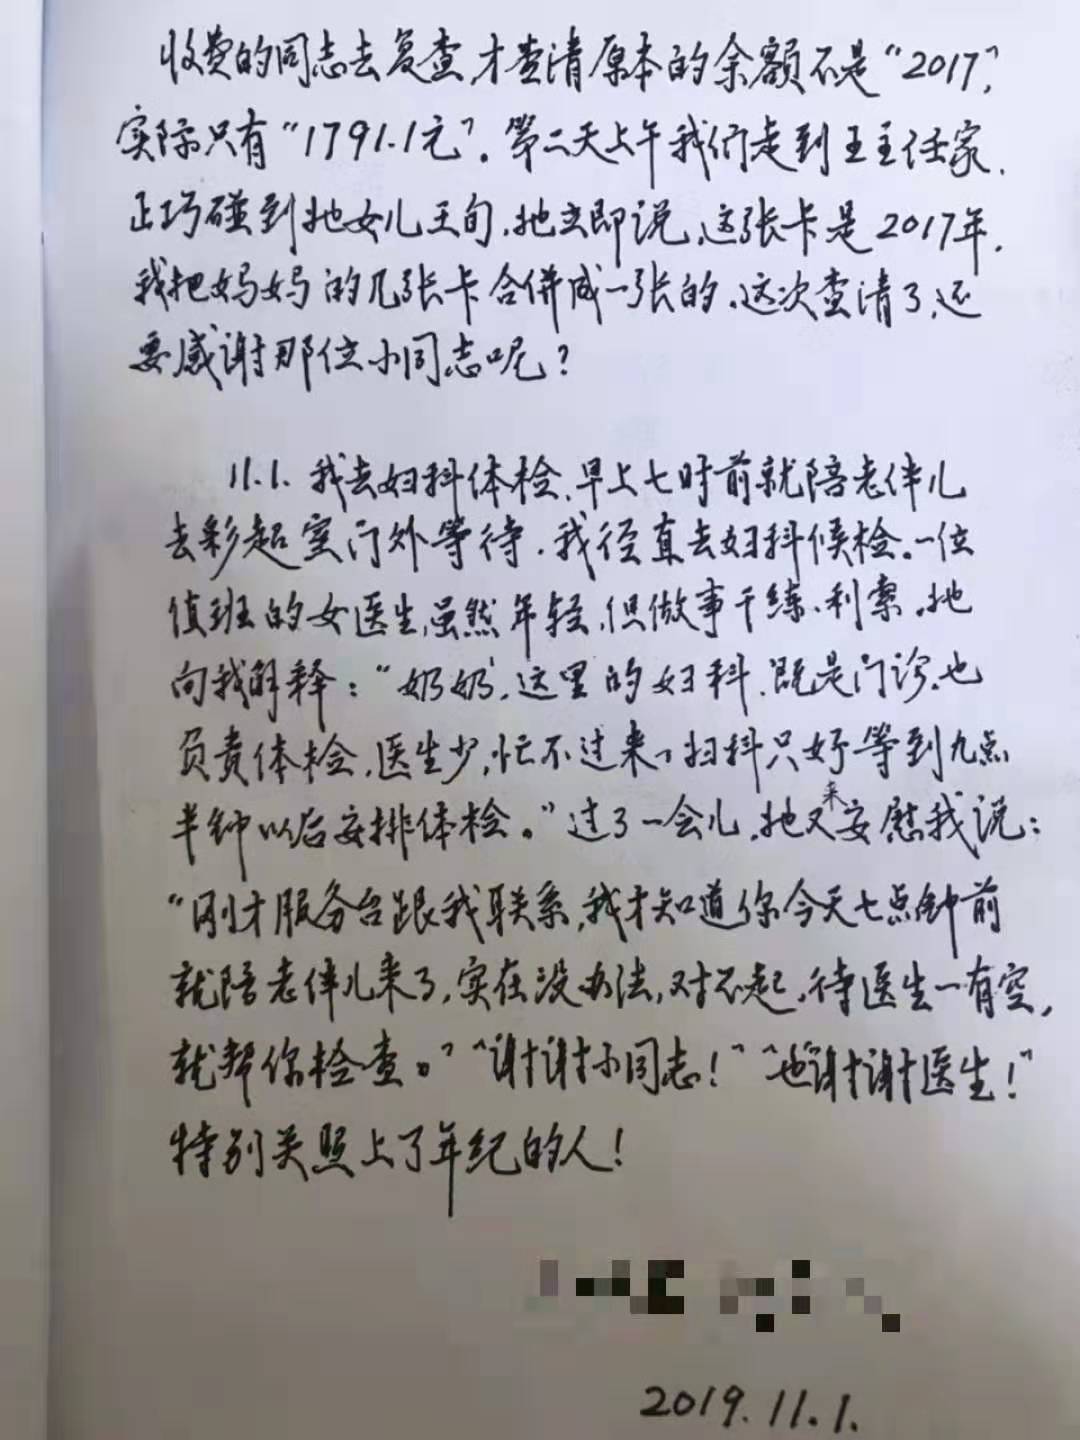 收费的同志去复查,才查清原本的余额不是“2017”,
实际只有“1791.1元”。第二天上午我们走到王主任家,
正巧碰到她女儿王旬,她立即说,这张卡是2017年,
我把妈妈的几张卡合併成一张的,这次查清了,还
要感谢那位小同志呢?
11.1.我去妇科体检,早上七时前就陪老伴儿
去彩超室门外等待,我径直去妇科候检。一位
值班的女医生,虽然年轻,但做事干练、利索。她
向我解释:“奶奶,这里的妇科,既是门诊,也
负责体检,医生少,忙不过来,妇科只好等到九点
半钟以后安排体检。”过了一会儿,她又来安慰我说:
“刚才服务台跟我联系,我才知道你今天七点钟前
就陪老伴儿来了,实在没办法,对不起,待医生一有空,
就帮你检查。”“谢谢小同志!”“也谢谢医生!”
特别关照上了年纪的人!
2019.11.1.